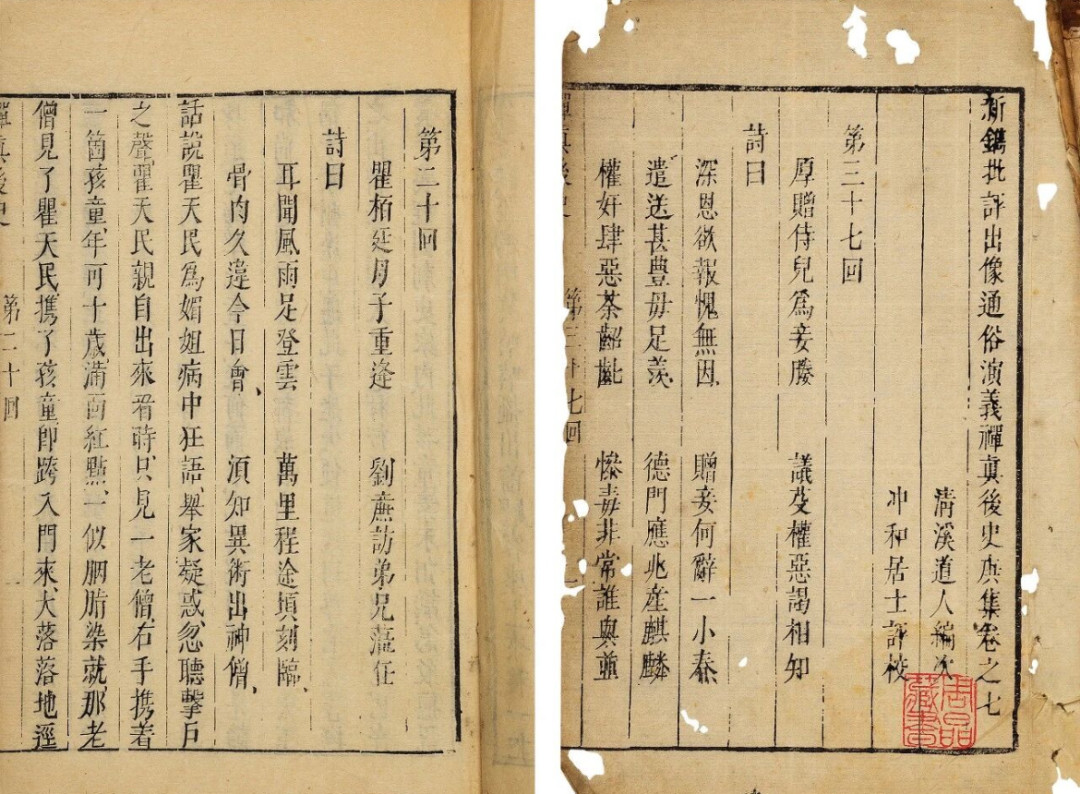 第二十回
瞿栢廷母子重逢　劉廉訪弟兄蒞任
詩曰
耳聞風雨足登雲　萬里程途頃刻臨、
骨肉久違今日會、須知異術出神僧、
話說瞿天民爲媚姐病中狂語、舉家疑惑、忽聽擊戶
之聲、瞿天民親自出來看時、只見一老僧、右手携着
一箇孩童、年可十歲、滿面紅點、似胭脂染就、那老
僧見了瞿天民、携了孩童、卽跨入門來、大落落地逕
禪眞後史　第二十回
新鐫批評出像通俗演義禪眞後史庚集卷之七
清溪道人編次
冲和居士評校
第三十七回
厚贈侍兒爲妾媵　議芟權惡謁相知
詩曰
深恩欲報愧無因　贈妾何辭一小秦
遣送甚豐毋足羨　德門應兆產麒麟
權奸肆惡荼齠齔　慘毒非常誰與並
禪眞後史　第三十七回